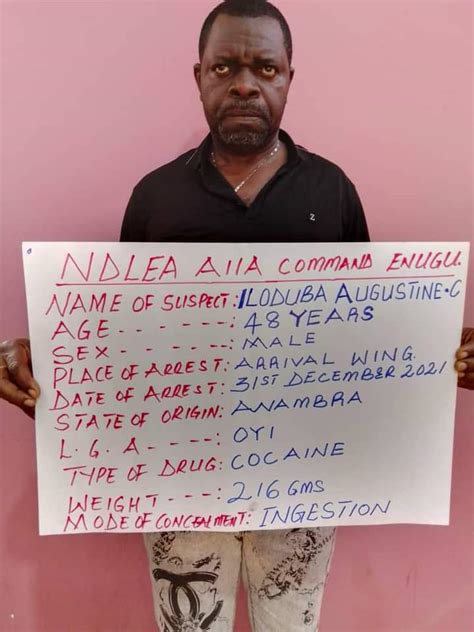 NDLEA AIIA COMMAND ENUGU.
NAME OF SUSPECT: ILODUBA AUGUSTINE.C
AGE - - - - - - -: 48 YEARS
SEX - - - - - - -: MALE
PLACE OF ARREST: ARRIVAL WING.
DATE OF ARREST: 31ST DECEMBER 2021
STATE OF ORIGIN: ANAMBRA
L. G. A - - - - -: OYI
TYPE OF DRUG: COCAINE
WEIGHT - - - -: 216 GMS
MODE OF CONCEALMENT: INGESTION
Z